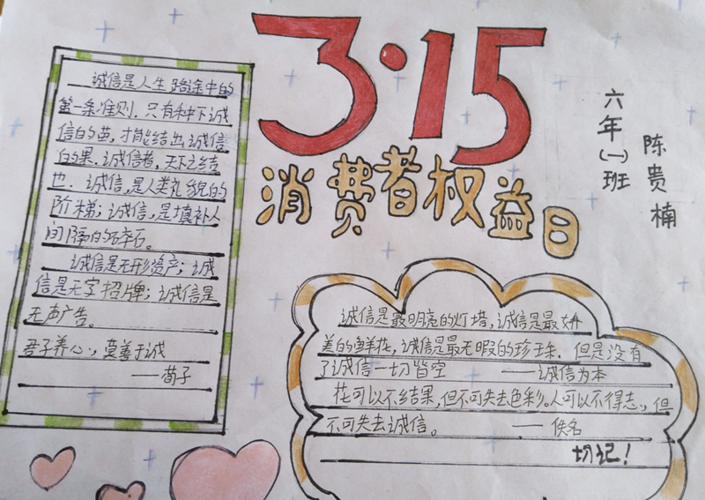 3·15
消费者权益日
六年(一)班
陈贵楠
诚信是人生路途中的
第一条准则.只有种下诚
信的苗,才能结出诚信
的果.诚信者,天下之结
也.诚信,是人类礼貌的
阶梯;诚信,是填补人
间隙的碎石。
诚信是无形资产;诚
信是无字招牌;诚信是
无声广告。
君子养心,莫善于诚
——荀子
诚信是最明亮的灯塔,诚信是最
美的鲜花,诚信是最无暇的珍珠.但是没有
了诚信一切皆空 ——诚信为本
花可以不结果,但不可失去色彩。人可以不得志,但
不可失去诚信。 ——佚名
切记!